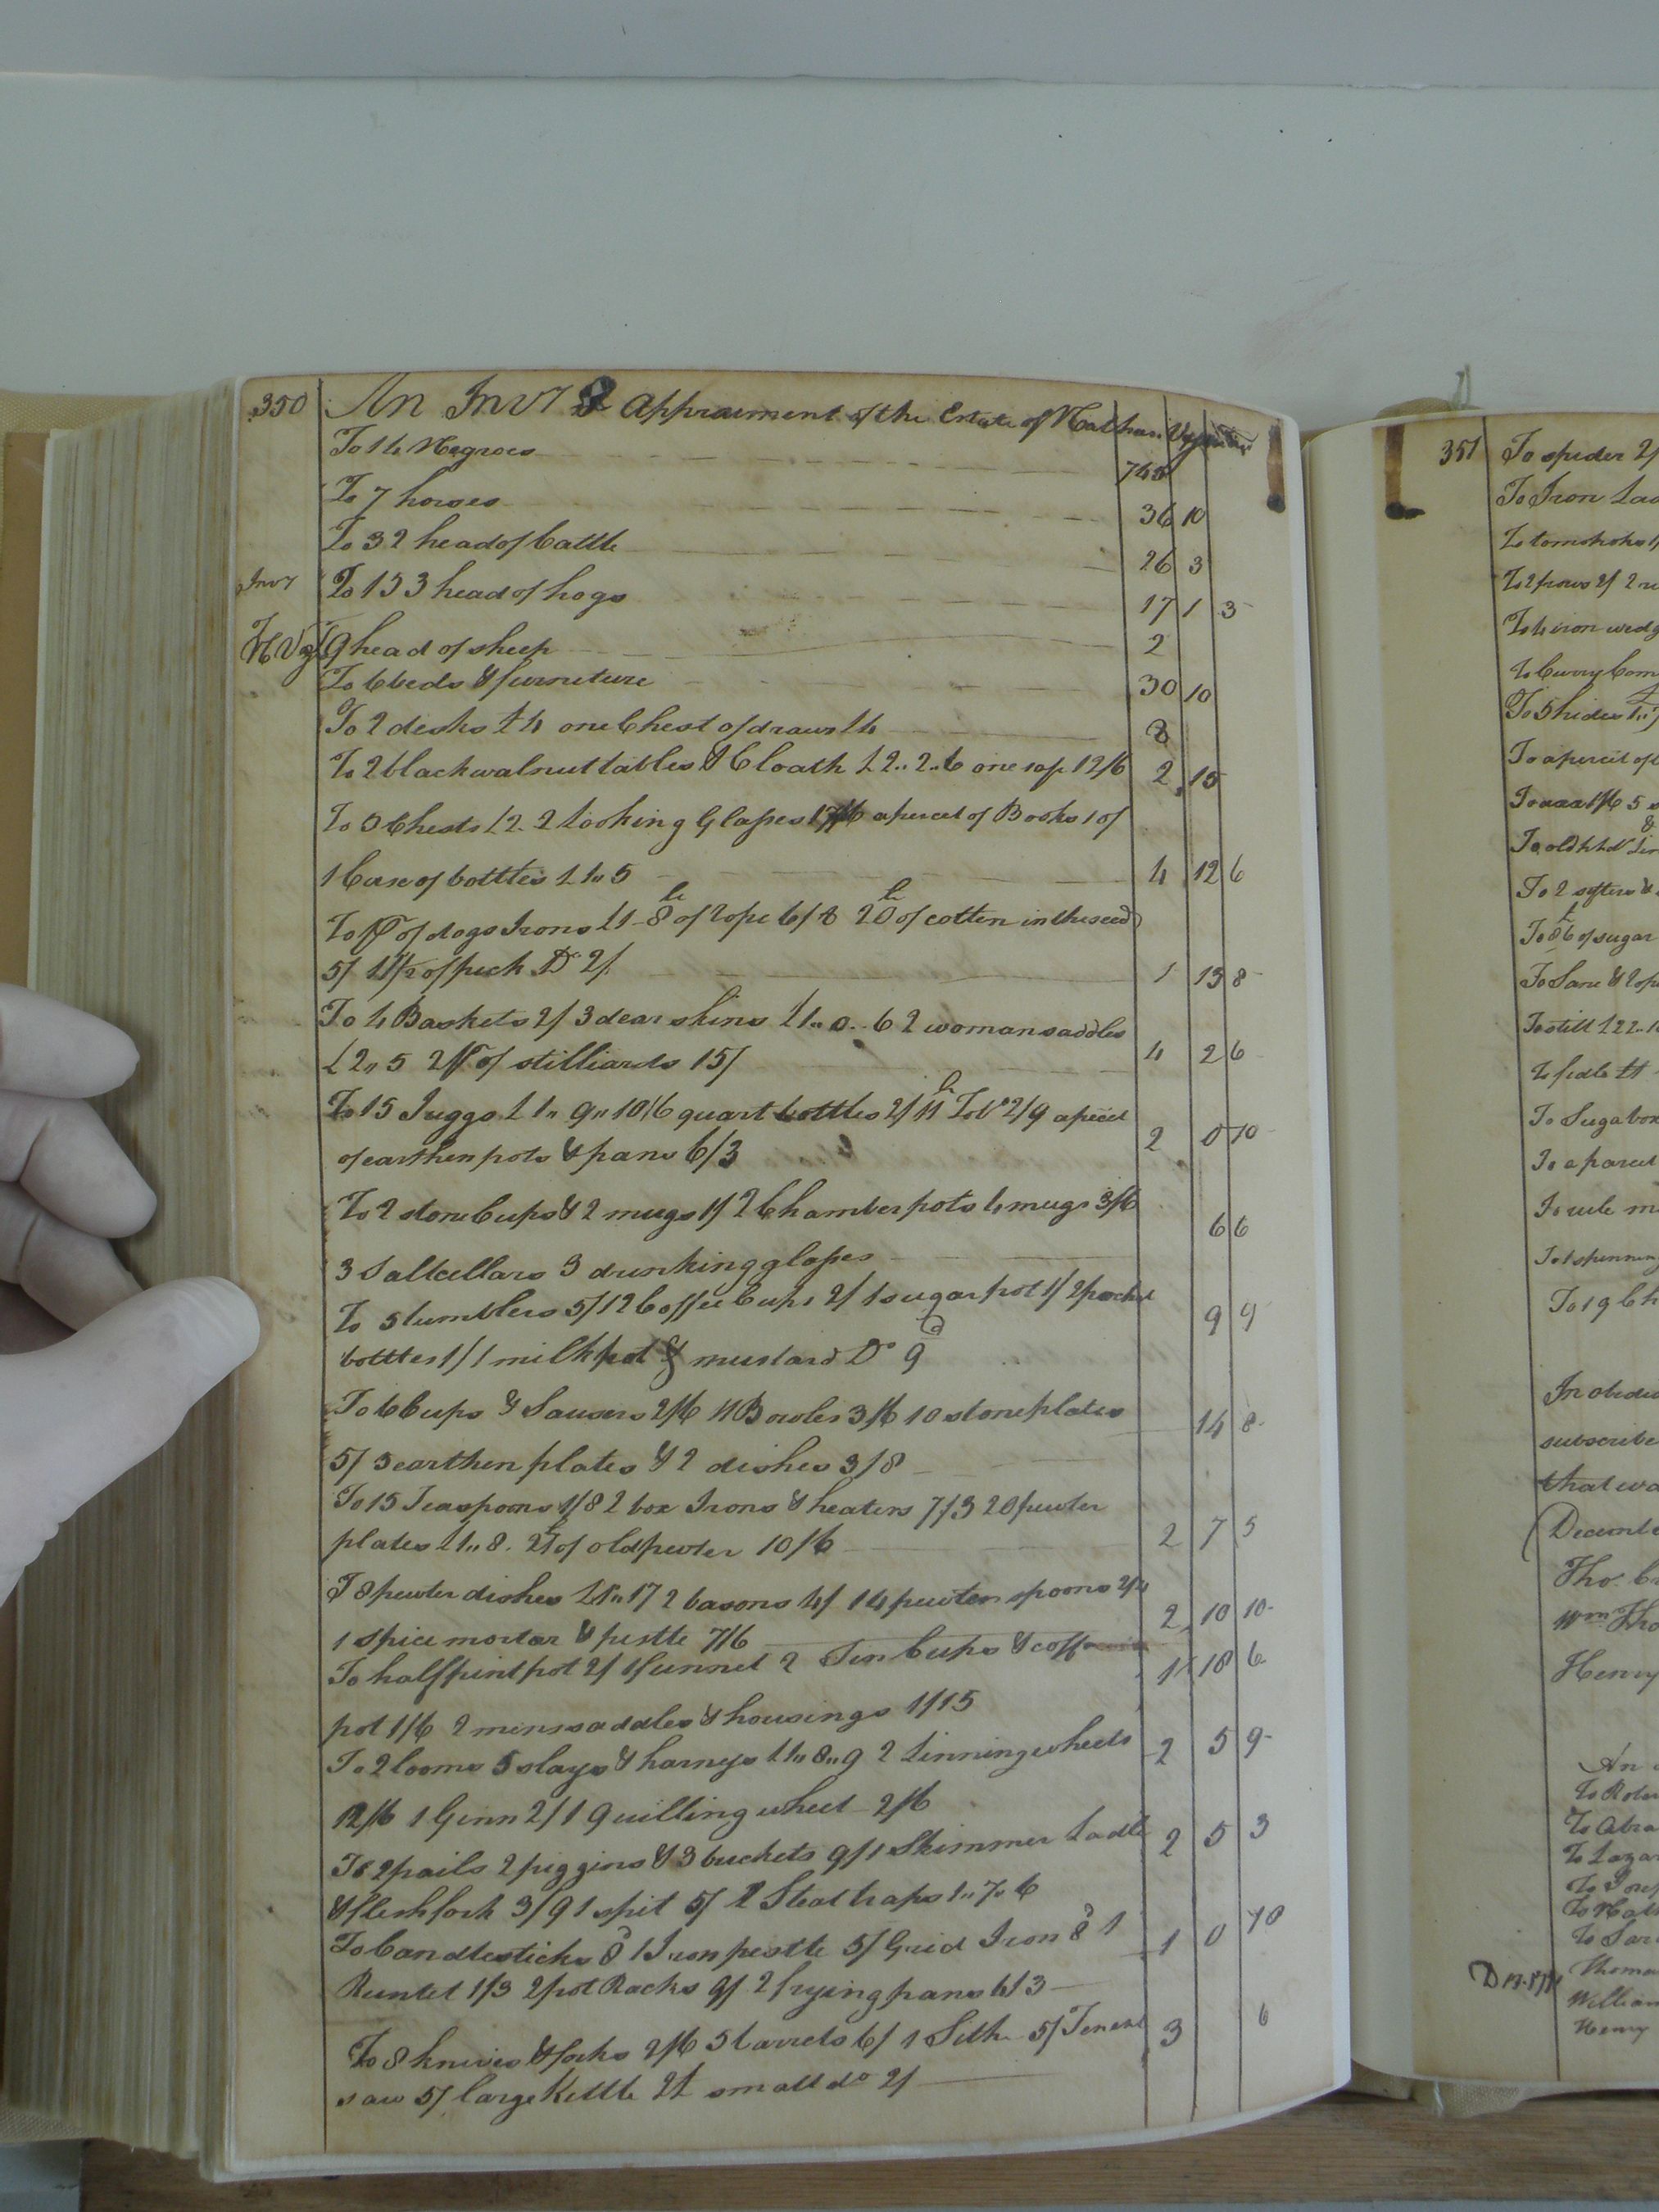 350 An Invy & Appraisment of the Estate of Nathan
To 14 Negroes 745
To 7 horses 36 10
To 32 head of Cattle 26 3
Invy To 153 head of hogs 17 1 3
9 head of sheep 2
To 6 beds & furneture 30 10
To 2 desks £4 one Chest of draws £4 8
To 2 black walnut tables & Cloath £2..2..6 one 12/6 2 15
To 5 Chests £2. 2 Looking Glasses 17/6 a percel of Books
1 Case of bottles £1..5 4 12 6
To 1 pr of dogs Irons £1 - 8 lb of rope 6/8 20 lb of cotten in the seed
5/ of pick Do 2/ 1 13 8
To 4 Baskets 2/ 3 dear skins £1..0..6 2 woman saddles
£2..5 2 pr of stilliards 15/ 4 2 6
To 15 Juggs £1..9..10 16 quart bottles 2/ 2/9 a peicel
of earthen pots & pans 6/3 2 0 10
To 2 stone Cups & 2 mugs 1/ 2 Chamber pots 4 mugs 3/6
3 Saltcellars 3 drinking glases 6 6
To 5 tumblers 5/ 12 Coffee Cups 2/ 1 sugar pot 1/ 2 pocket
bottles 1/ 1 milk pot & mustard Do 9d 9 9
To 6 Cups & Sausers 2/6 4 Bowles 3/6 10 stone plates
5/ 5 earthen plates & 2 dishes 3/8 14 8
To 15 Teaspoons 1/8 2 box Irons & heaters 7/3 20 pewter
plates £1..8. of old pewter 10/6 2 7 5
To 8 pewter dishes £1..17 2 basons 4/ 14 pewter spoons 2/4
1 spice mortar & pestle 7/6 2 10 10
To half pint pot 2/ 1 funnel 2 Tin Cups &
pot 1/6 2 mens saddles & housings 1/15 1 18 6
To 2 looms 5 slays & harneys £1..8..9 2 Linning wheels
12/6 1 Ginn 2/ 1 Quilling wheel 2/6 2 5 9
To 2 pails 2 piggins & 3 buckets 9/ 1 Skimmer Ladle
& fleshfork 3/9 1 spit 5/ 2 Steal traps 1..7..6 2 5 3
To Candlesticks 8d 1 Iron pestle 5/ Grid Iron 8d 1
Runlet 1/3 2 pot Racks 9/ 2 frying pans 6/3 1 0 10
To 8 knives & forks 2/6 5 barrels 6/ 1 Sith 5/ Tenent
saw 5/ large Kettle 2£ small do 2/ 3 6
351 To spider 2/
To Iron
To tomohoks
To 4 iron wedg
To Curry Com
To 5 hides
To a percil of
To 2 sifters &
To 86 of sugar
To still £22..
To Suga box
To a parcel
To 1 spinning
To 19 Ch
In obedie
subscribe
that wa
Decembe
Tho. C
Wm Tho
Henry
An
To Abra
To Lazar
To Sar
Thoma
William
Henry